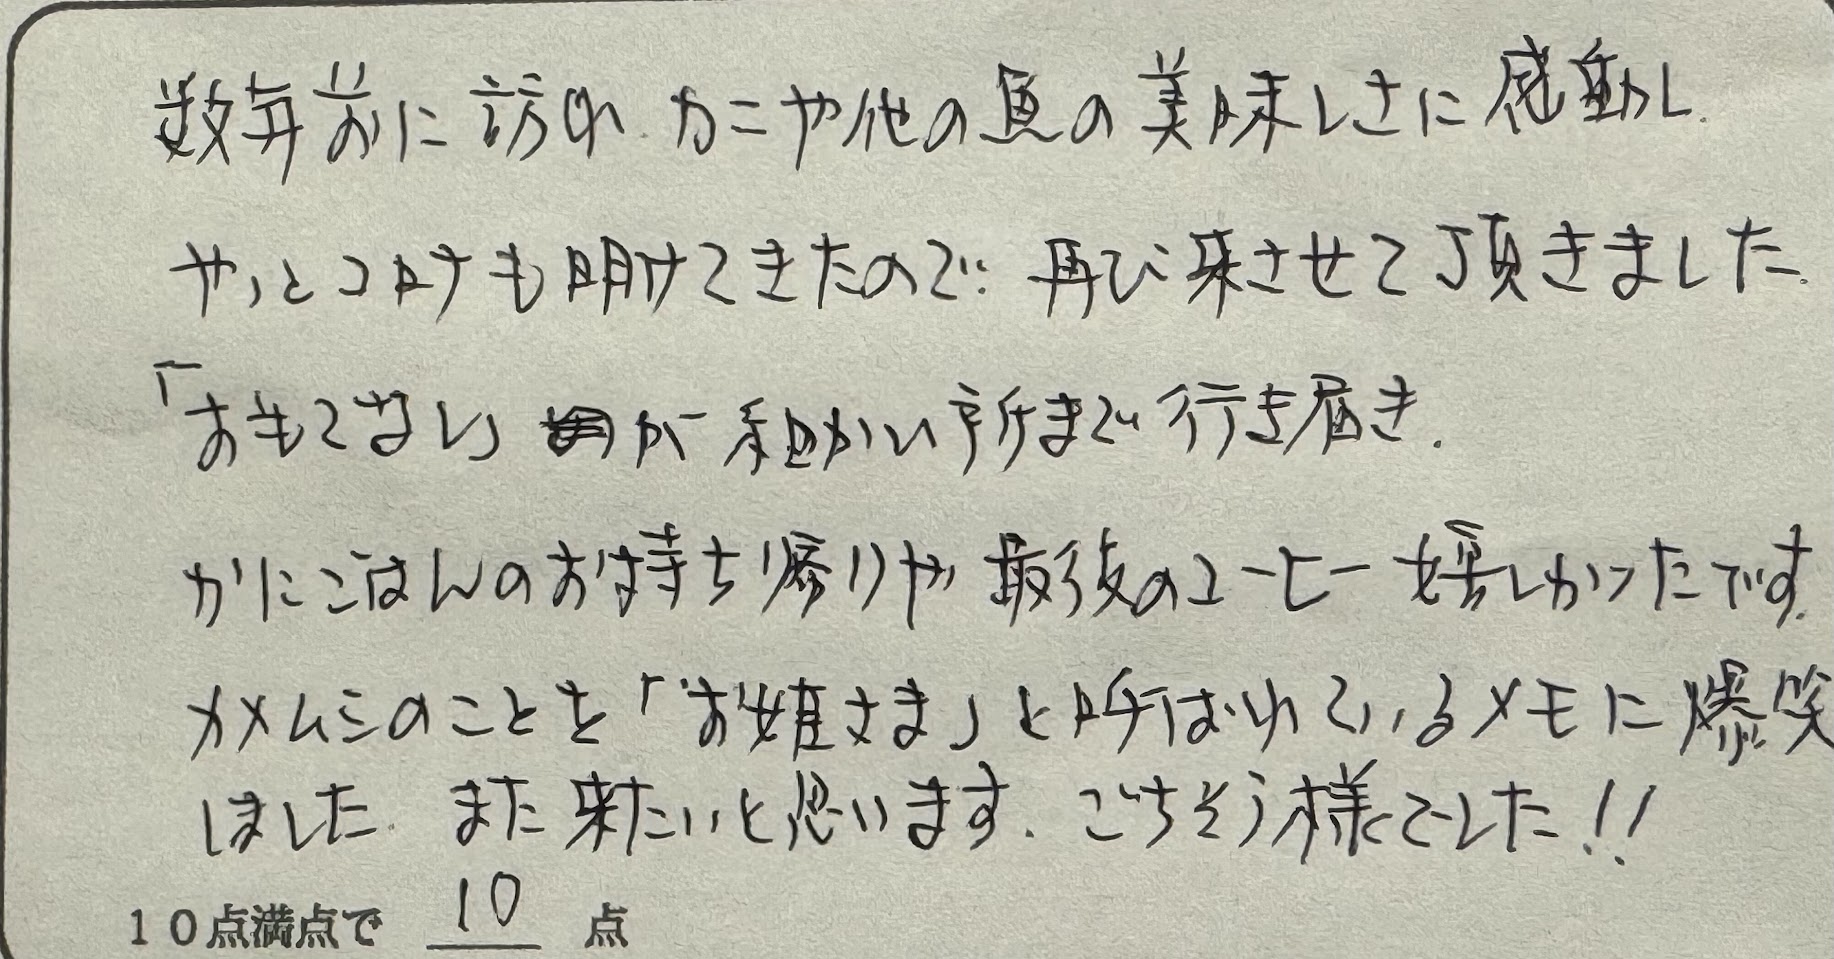 数年前に訪れ カニや他の魚の美味しさに感動し、
やっとコロナも明けてきたので、再び来させて頂きました。
「おもてなし」が細かい所まで行き届き、
かにごはんのお持ち帰りや最後のコーヒー嬉しかったです。
カメムシのことを「お姫さま」と呼ばれているメモに爆笑
しました。また来たいと思います。ごちそう様でした!!
10点満点で 10 点